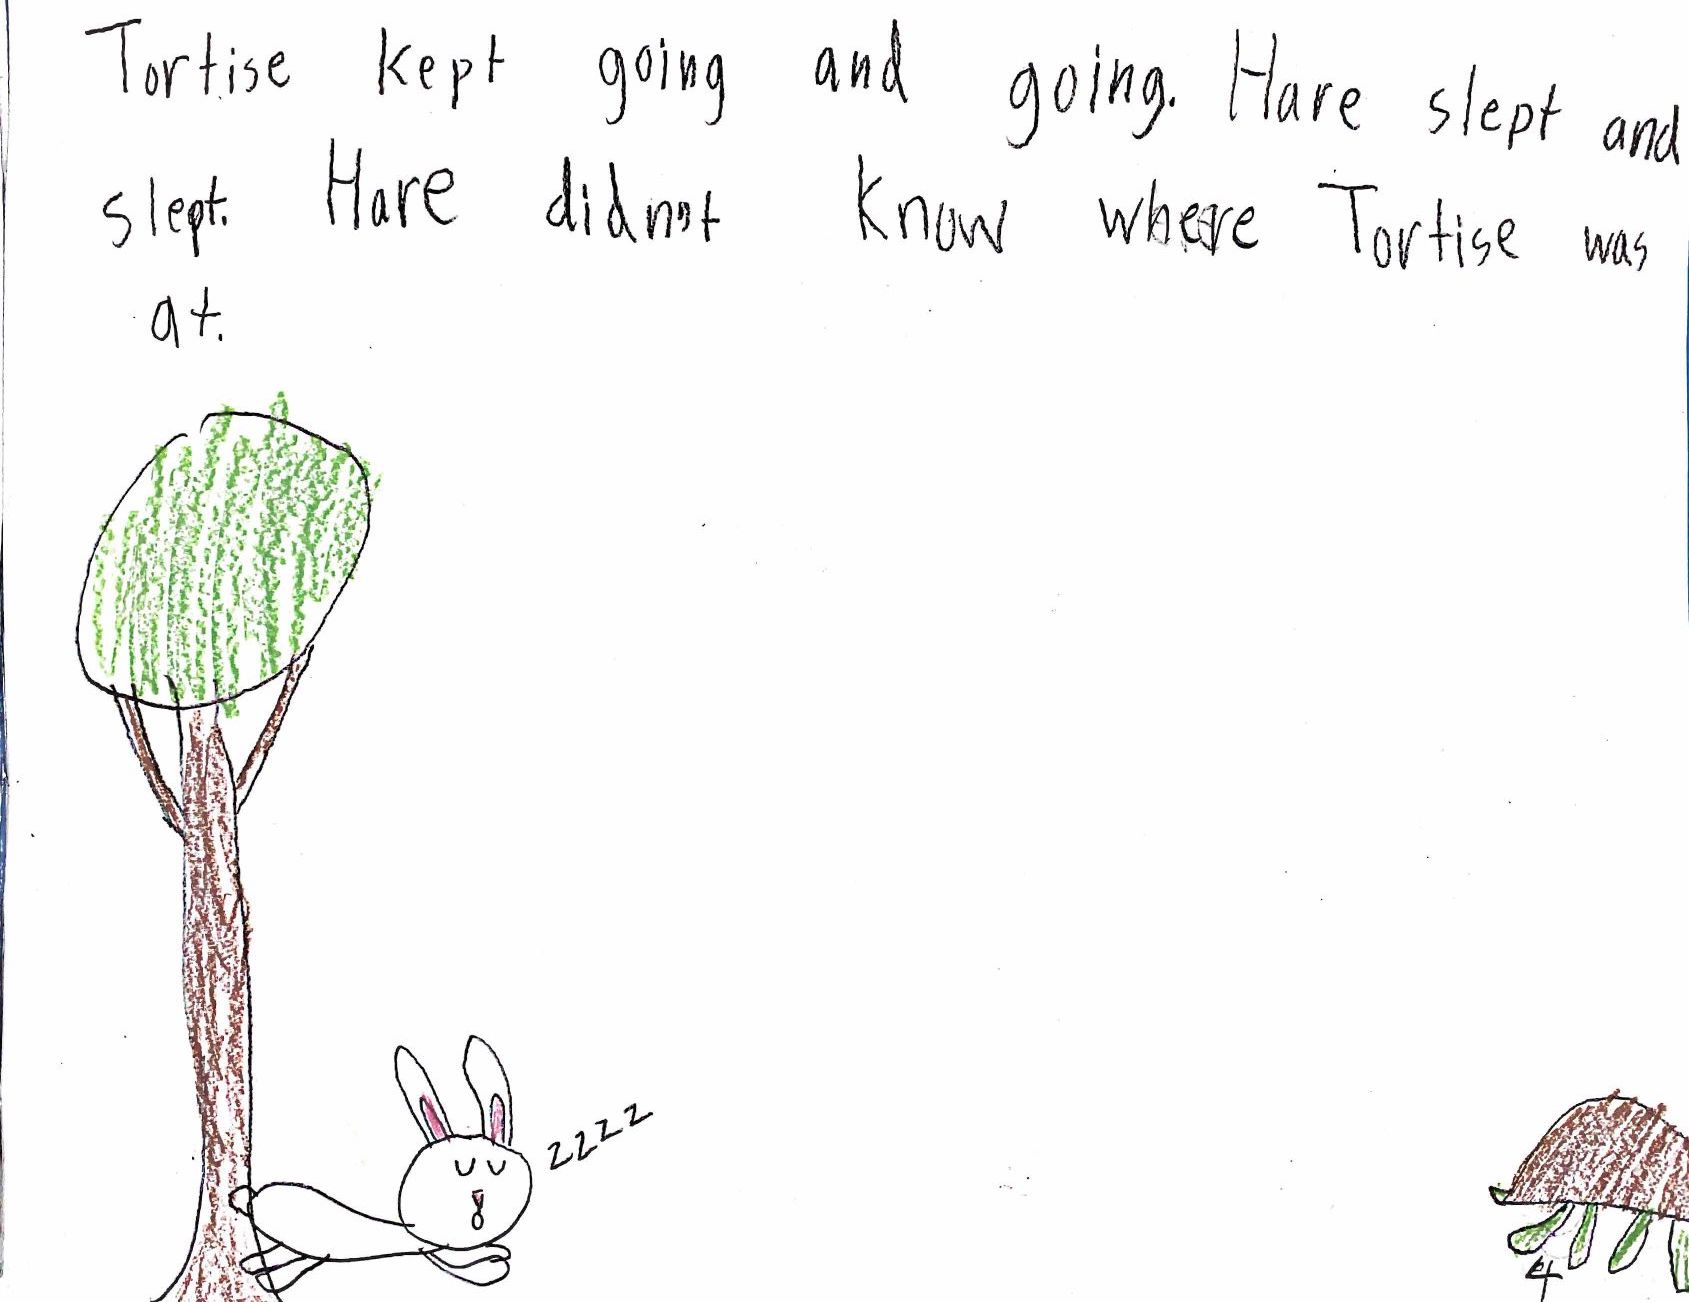 Tortise kept going and going. Hare slept and
slept. Hare didnot know where Tortise was
at.
zzzz
4